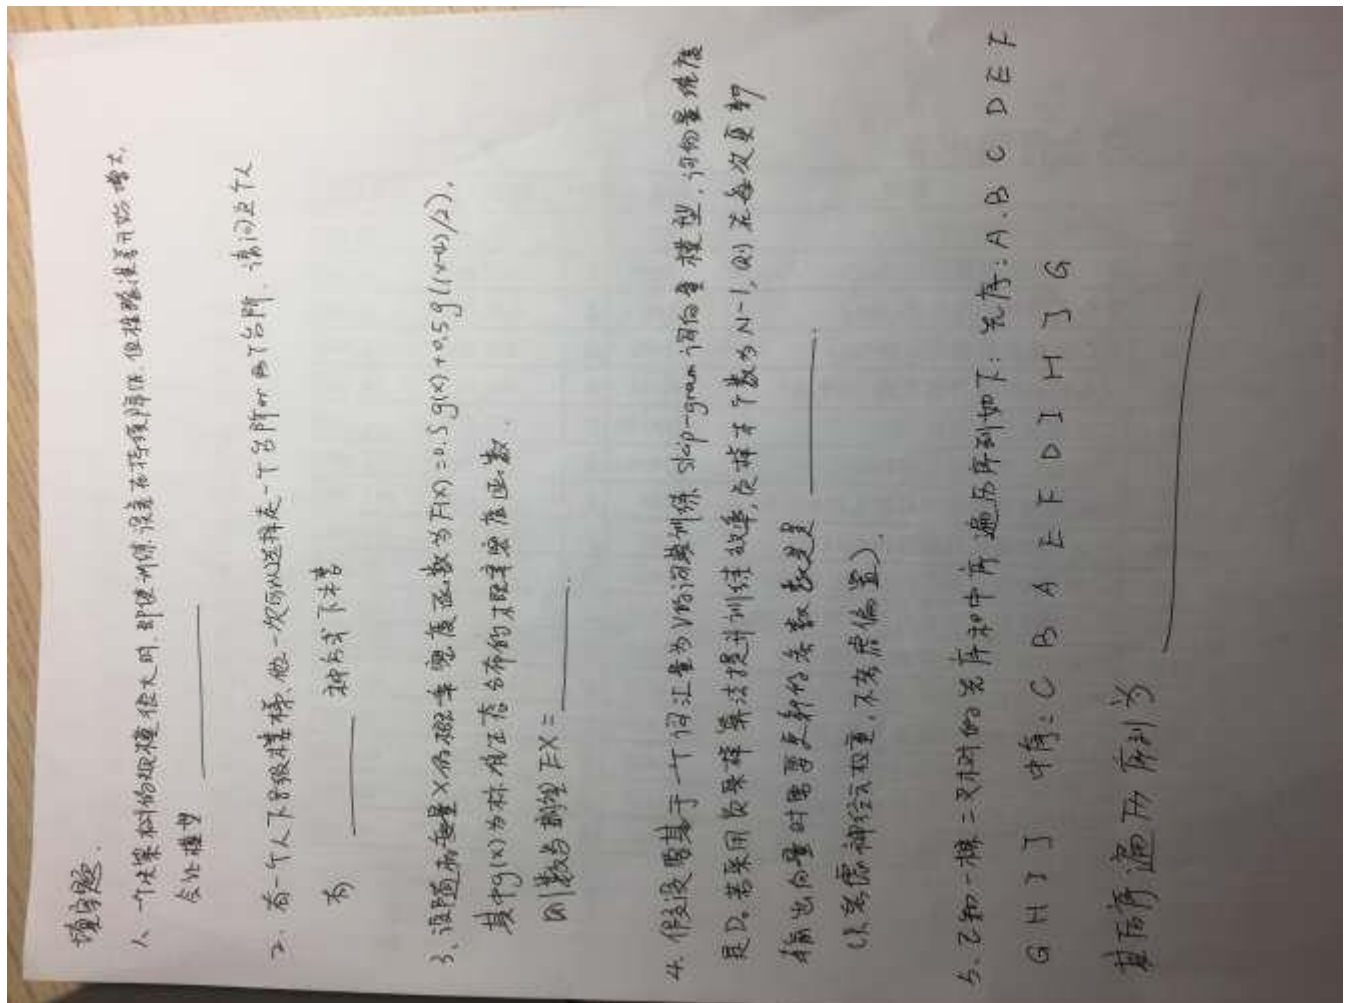 填空题.
1、一个决策树的规模很大时,即使训练误差在持续降低,但检验误差开始增大,
2、有一个人下8级楼梯,他一次可以选择走一个台阶or两个台阶,请问这个人
有 种方式下楼
3、设随机变量X的概率密度函数为F(x)=0.5g(x)+0.5g((x-4)/2),
其中g(x)为标准正态分布的概率密度函数.
则数学期望EX=
4、假设要基于一个词汇量为V的词典训练skip-gram词向量模型,词向量维度
是D。若采用负采样算法提升训练效率,负样本个数为N-1,则在每次更新
输出向量时需要更新的参数数是
(只考虑神经元权重,不考虑偏置).
5、已知一棵二叉树的先序和中序遍历序列如下:先序:A.B C D E F
G H I J 中序:C B A E F D I H J G
其后序遍历序列为